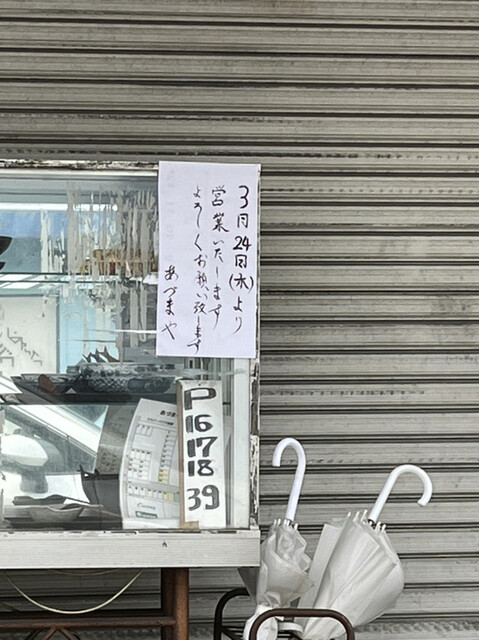 3月24日(水)より
営業いたします
よろしくお願い致します
あづまや
P
16
17
18
39